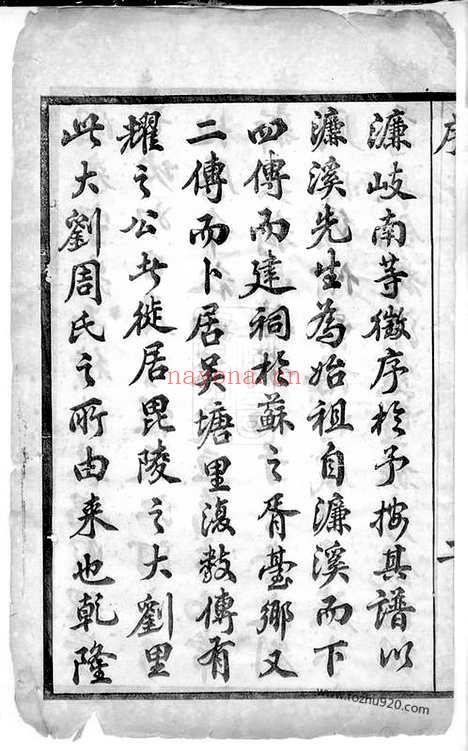 序
二
濂岐南等徵序於予按其譜以
濂溪先生為始祖自濂溪而下
四傳而建祠於蘇之胥臺鄉又
二傳而卜居吳塘里復數傳有
耀之公者徙居毘陵之大劉里
此大劉周氏之所由来也乾隆
nayona.cn
www.rozhu920.com